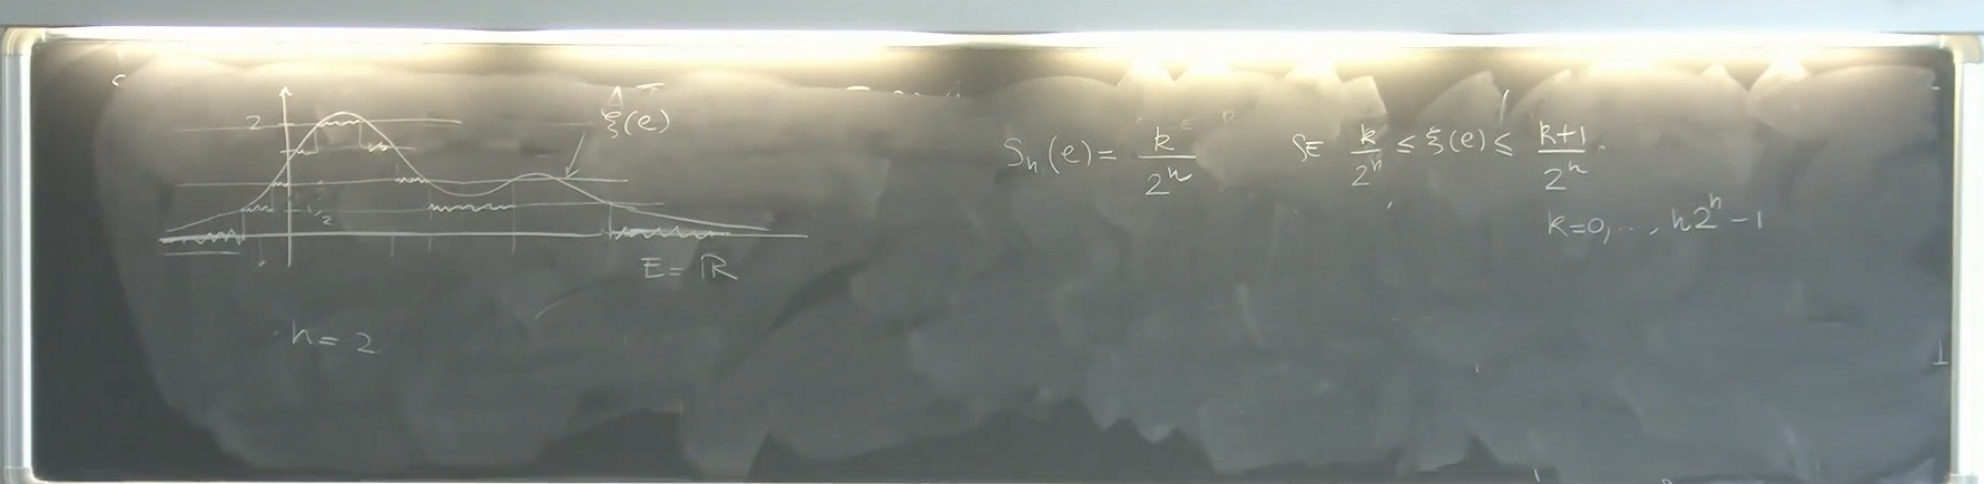 ξ(e)
2
1/2
E = ℝ
n = 2
Sₙ(e) = k/2ⁿ SE k/2ⁿ ≤ ξ(e) ≤ k+1/2ⁿ
k=0, ..., n2ⁿ - 1